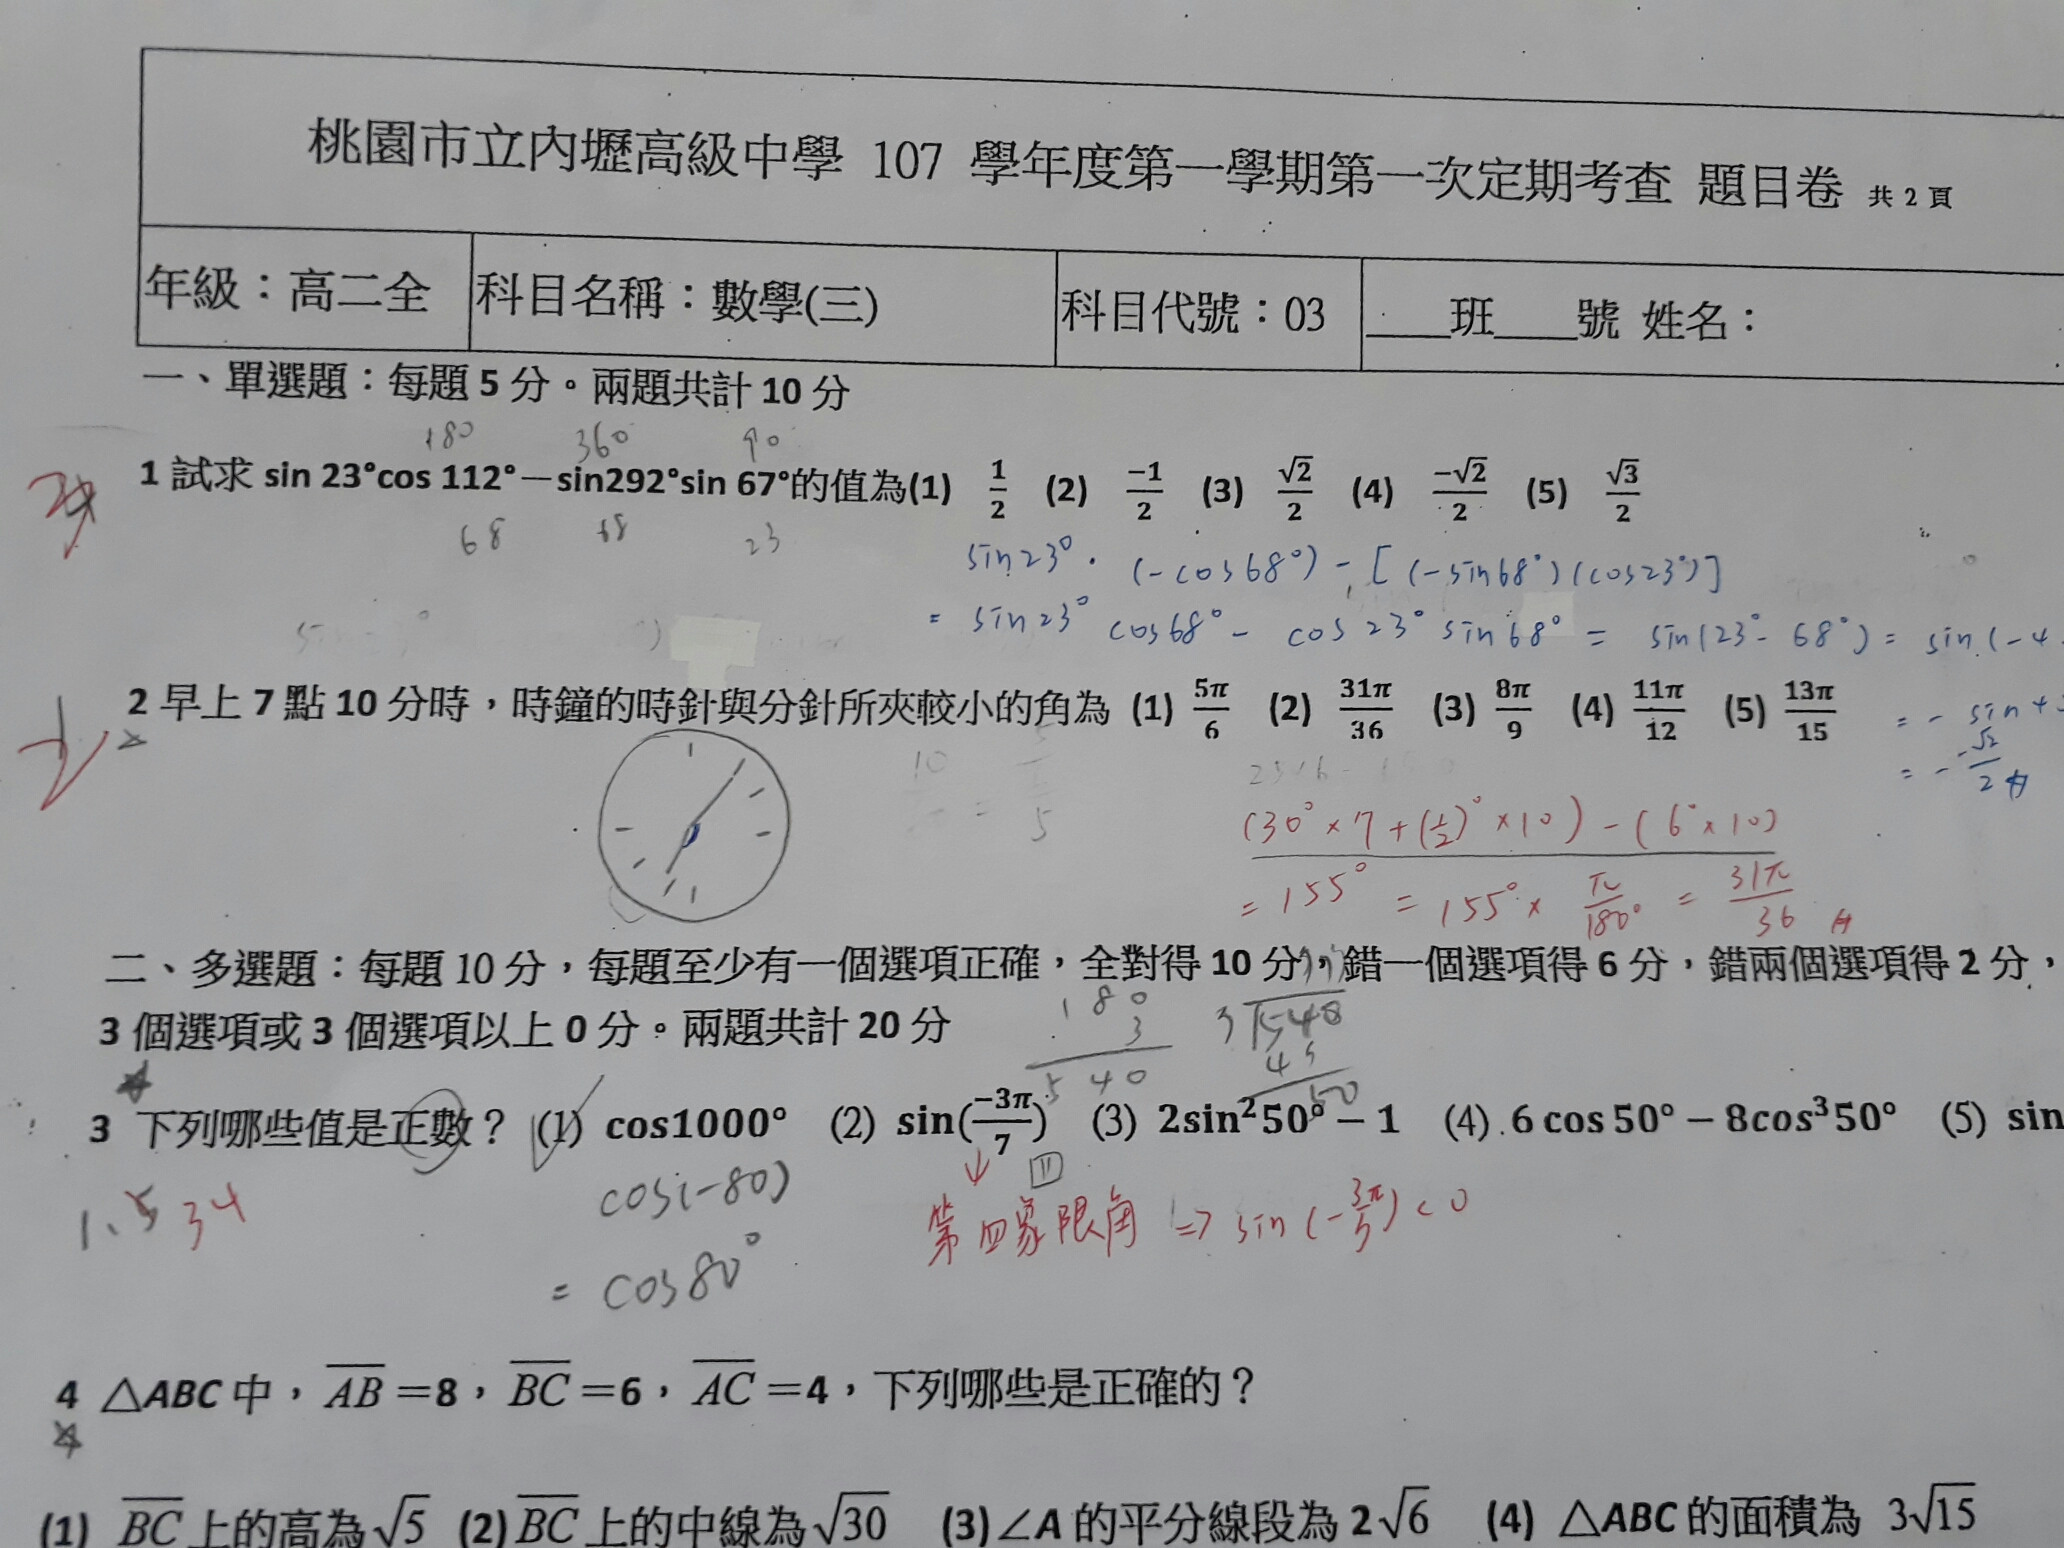 桃園市立內壢高級中學 107 學年度第一學期第一次定期考查 題目卷 共 2 頁
年級：高二全 科目名稱：數學(三) 科目代號：03 ____班____號 姓名：
一、單選題：每題 5 分。兩題共計 10 分
180 360 90
1 試求 sin 23°cos 112°－sin292°sin 67°的值為(1) 1/2 (2) -1/2 (3) √2/2 (4) -√2/2 (5) √3/2
68 68 23
sin23°. (-cos68°) - [(-sin68°)(cos23°)]
= sin23° cos68° - cos23° sin68° = sin(23°- 68°) = sin(-4
2 早上 7 點 10 分時，時鐘的時針與分針所夾較小的角為 (1) 5π/6 (2) 31π/36 (3) 8π/9 (4) 11π/12 (5) 13π/15
= - sin4
= - √2/2
(30°×7+(1/2)°×10) - (6°×10)
= 155° = 155°× π/180° = 31π/36
二、多選題：每題 10 分，每題至少有一個選項正確，全對得 10 分，錯一個選項得 6 分，錯兩個選項得 2 分，
3 個選項或 3 個選項以上 0 分。兩題共計 20 分
180 3 540
3 540 45
3 下列哪些值是正數？ (1) cos1000° (2) sin(-3π/7) (3) 2sin²50° − 1 (4) 6 cos 50° − 8cos³50° (5) sin
1、5 3 4
cos(-80)
第四象限角 => sin(-3π/7) < 0
= cos80°
4 △ABC 中，AB＝8，BC＝6，AC＝4，下列哪些是正確的？
(1) BC 上的高為√5 (2) BC 上的中線為√30 (3) ∠A 的平分線段為 2√6 (4) △ABC 的面積為 3√15